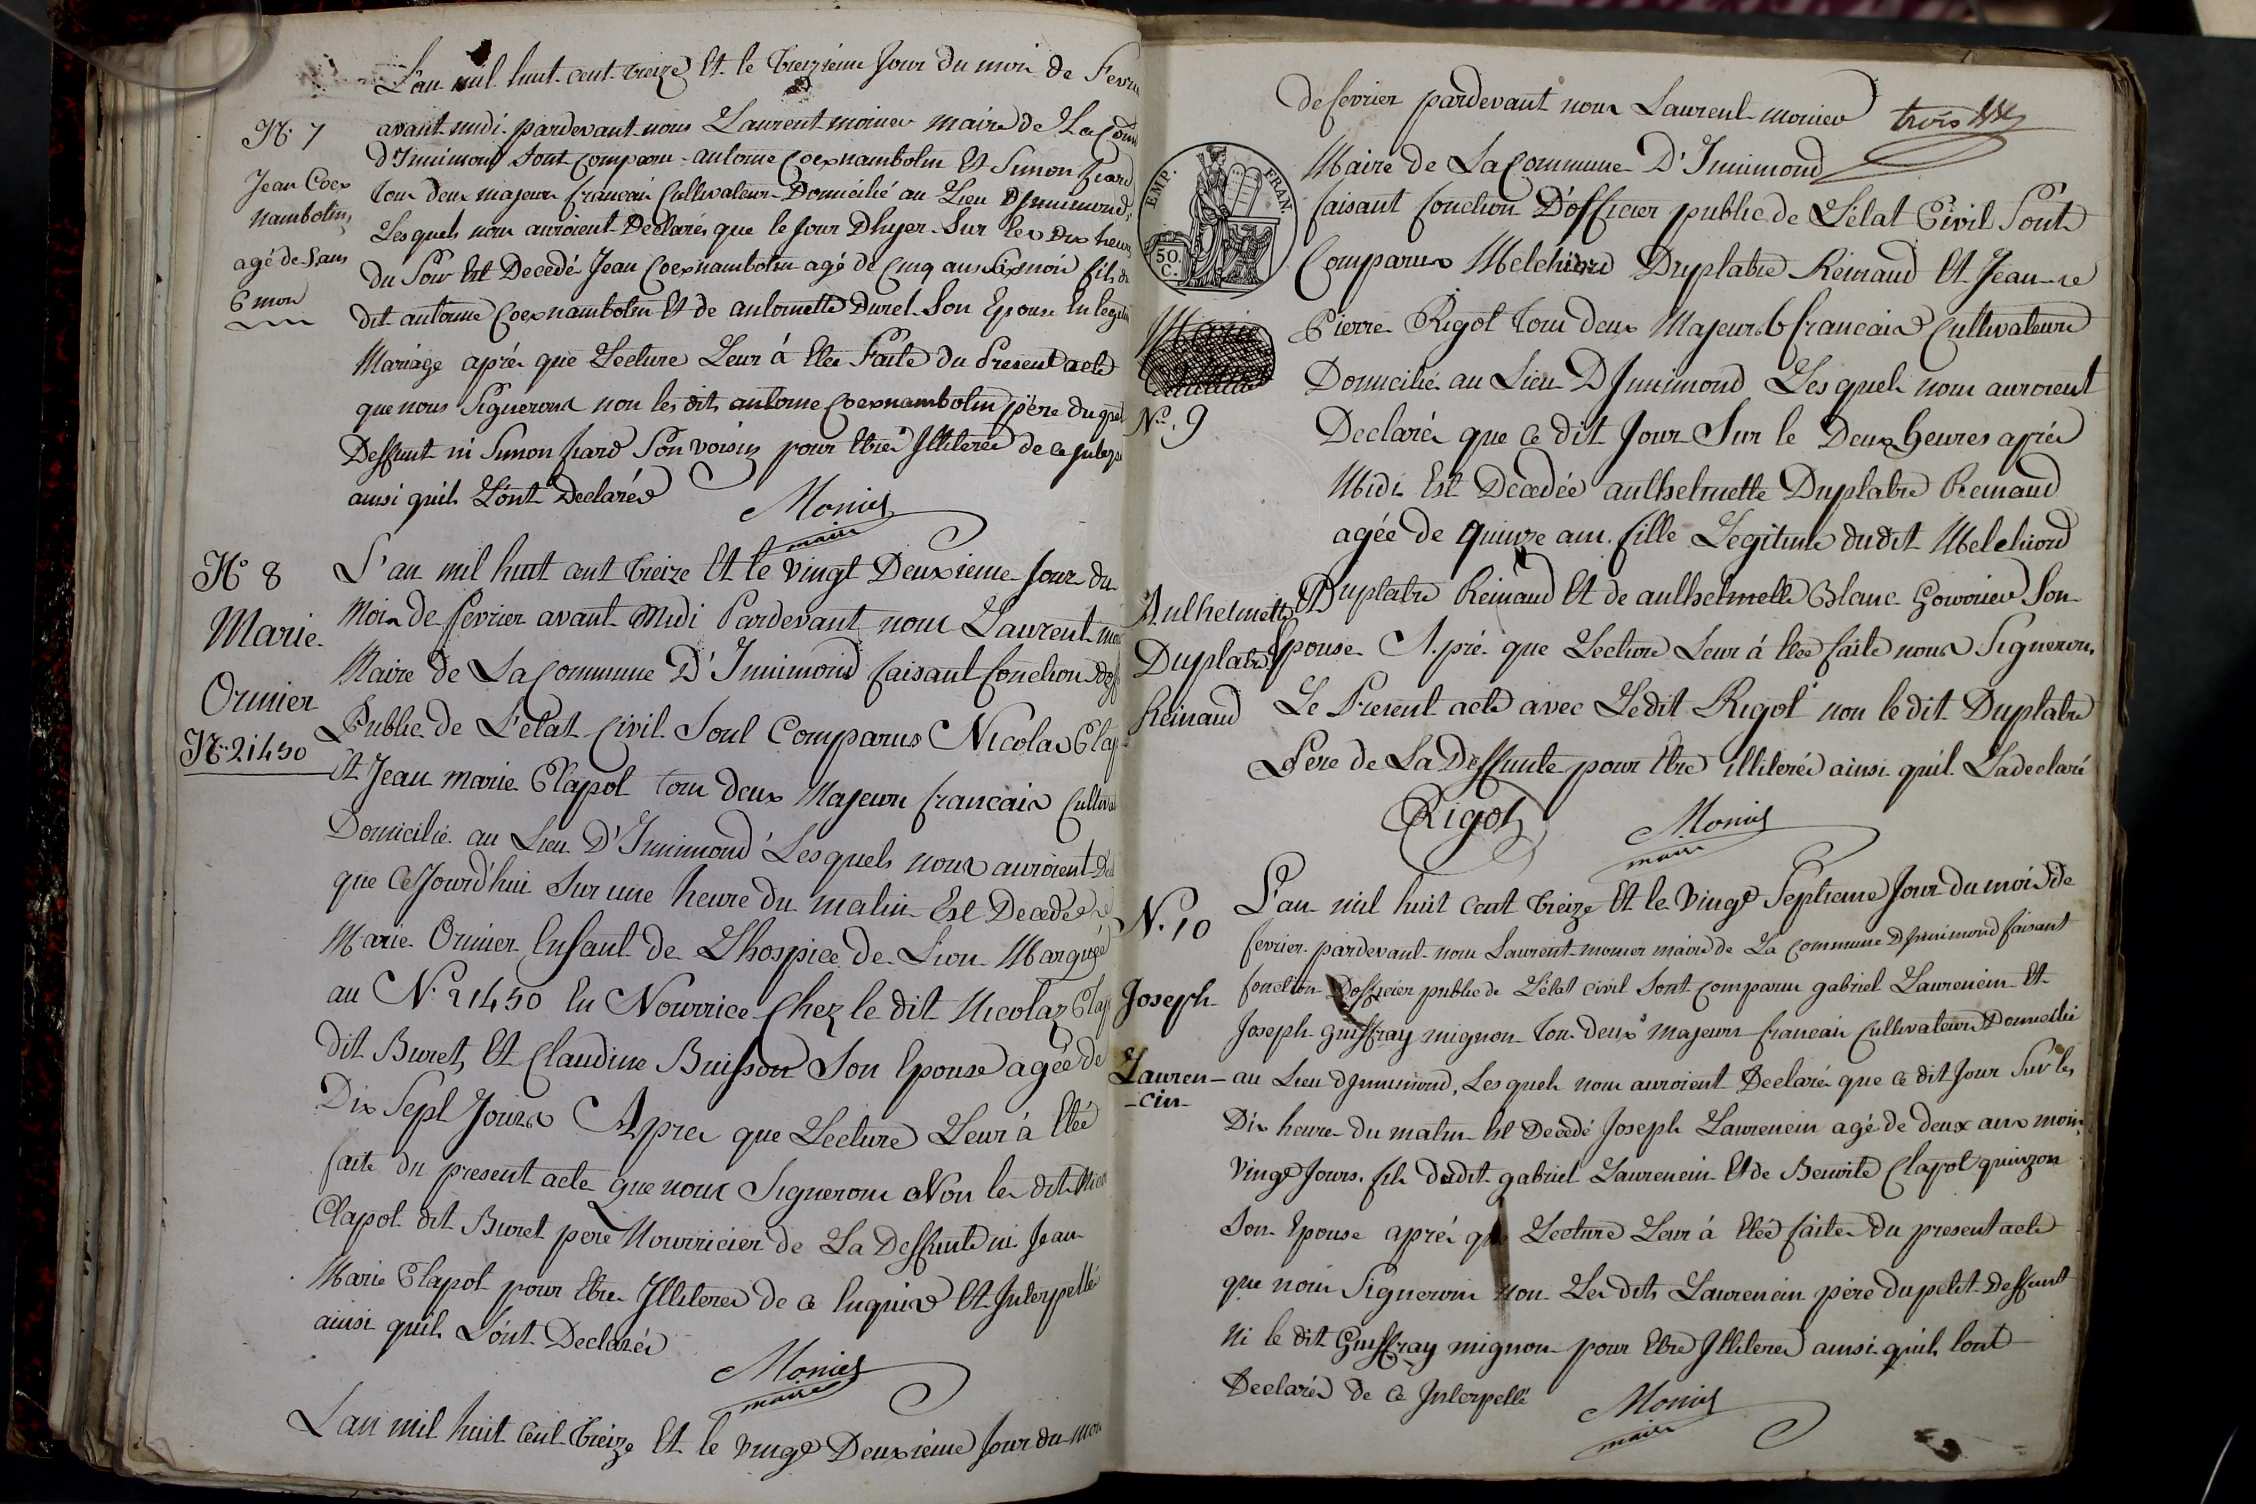 L'an mil huit cent treize Et le treizieme Jour du moi de Fevri
N° 7
avant midi pardevant nous Laurent monier maire de La Com
d'Innimond Sont comparu antoine Coexnambotin Et Simon fiard
Jean Coex
nambotin,
agé de 5 ans
6 moi
tou deux majeur francai Cultivateur Domicilié au Lieu D'Innimond,
Lesquels nou auroient Declarés que le Jour Dhyer Sur les Dix heur
du Soir Est Decedé Jean Coexnambotin agé de Cinq ans Six moi fils du
dit antoine Coexnambotin Et de antoinette Duret Son Epouse En legiti
Mariage aprés que Lecture Leur á Etée Faite du Present acte
que nous Signerons non les dits antoine Coexnambotin pere du
Deffunt ni Simon fiard Son voisin pour Etre Illiterés de ce
ainsi quils L'ont Declarés
Monier
maire
N° 8
Marie
Ornier
N° 21450
L'an mil huit cent treize Et le vingt Deuxieme Jour du
Moi de fevrier avant Midi Pardevant nou Laurent mo
Maire de La Commune D'Innimond faisant fonction dof
Public de L'état Civil Sont Comparus Nicolas Clap
Et Jean marie Clapot tou deux Majeur francais Cultiva
Domicilié au Lieu D'Innimond Lesquels nous auroient De
que Cejourd'hui Sur une heure du matin Est Decedée
Marie Ornier Enfant de Lhospice de Lion Marquée
au N° 21450 En Nourrice Chez le dit Nicolas Clap
dit Buret, Et Claudine Buisson Son Epouse agée de
Dix Sept Jours Apres que Lecture Leur á Etée
faite du present acte que nous Signerons Non les dit Nico
Clapot dit Buret pere Nourricier de La Deffunte ni Jean
Marie Clapot pour Etre Illiterés de ce Enquis Et Interpellé
ainsi quils L'ont Declarés
Monier
maire
L'an mil huit Cent treize Et le vingt Deuxieme Jour du moi
de fevrier pardevant nous Laurent monier
trois
Maire de La Commune D'Innimond
EMP. FRAN.
50. C.
faisant fonction D'officier public de L'état Civil Sont
Comparus Melchiord Duplatre Reinaud Et Jean-
Pierre Rigot tou deux Majeurs francais Cultivateurs
Marie
Domicilié au Lieu D'Innimond Lesquels nous auroient
N°. 9
Declarés que ce dit Jour Sur le Deux heures aprés
Midi Est Decedée anthelmette Duplatre Reinaud
agée de quinze ans fille Legitime dudit Melchiord
Anthelmette
Duplatre
Reinaud
Duplatre Reinaud Et de anthelmette Blanc Son
Epouse Aprés que Lecture Leur á étée faite nous Signerons
Le Present acte avec Ledit Rigot non le dit Duplatre
Pere de La Deffunte pour Etre illiterés ainsi quil La declaré
Rigot
Monier
maire
N. 10
L'an mil huit cent treize Et le Vingt Septieme Jour du mois de
fevrier pardevant nou Laurent monier maire de La Commune D'Innimond faisant
Joseph
Lauren-
-cin-
fonction D'officier public de L'état civil Sont comparu gabriel Laurencin Et
Joseph guiffray mignon tou deux majeurs francais Cultivateurs Domicilié
au Lieu d'Innimond, Lesquels nou auroient Declaré que ce dit Jour Sur les
Dix heure du matin Est Decedé Joseph Laurencin agé de deux ans moin
Vingt Jours, fils dudit gabriel Laurencin Et de Benoite Clapot quinzon
Son Epouse aprés que Lecture Leur á Etée faite du present acte
que nous Signerons Non Les dits Laurencin pére du petit Deffunt
Ni le dit Guiffray mignon pour Etre Illiterés ainsi quils lont
Declarés de ce Interpellé
Monier
maire